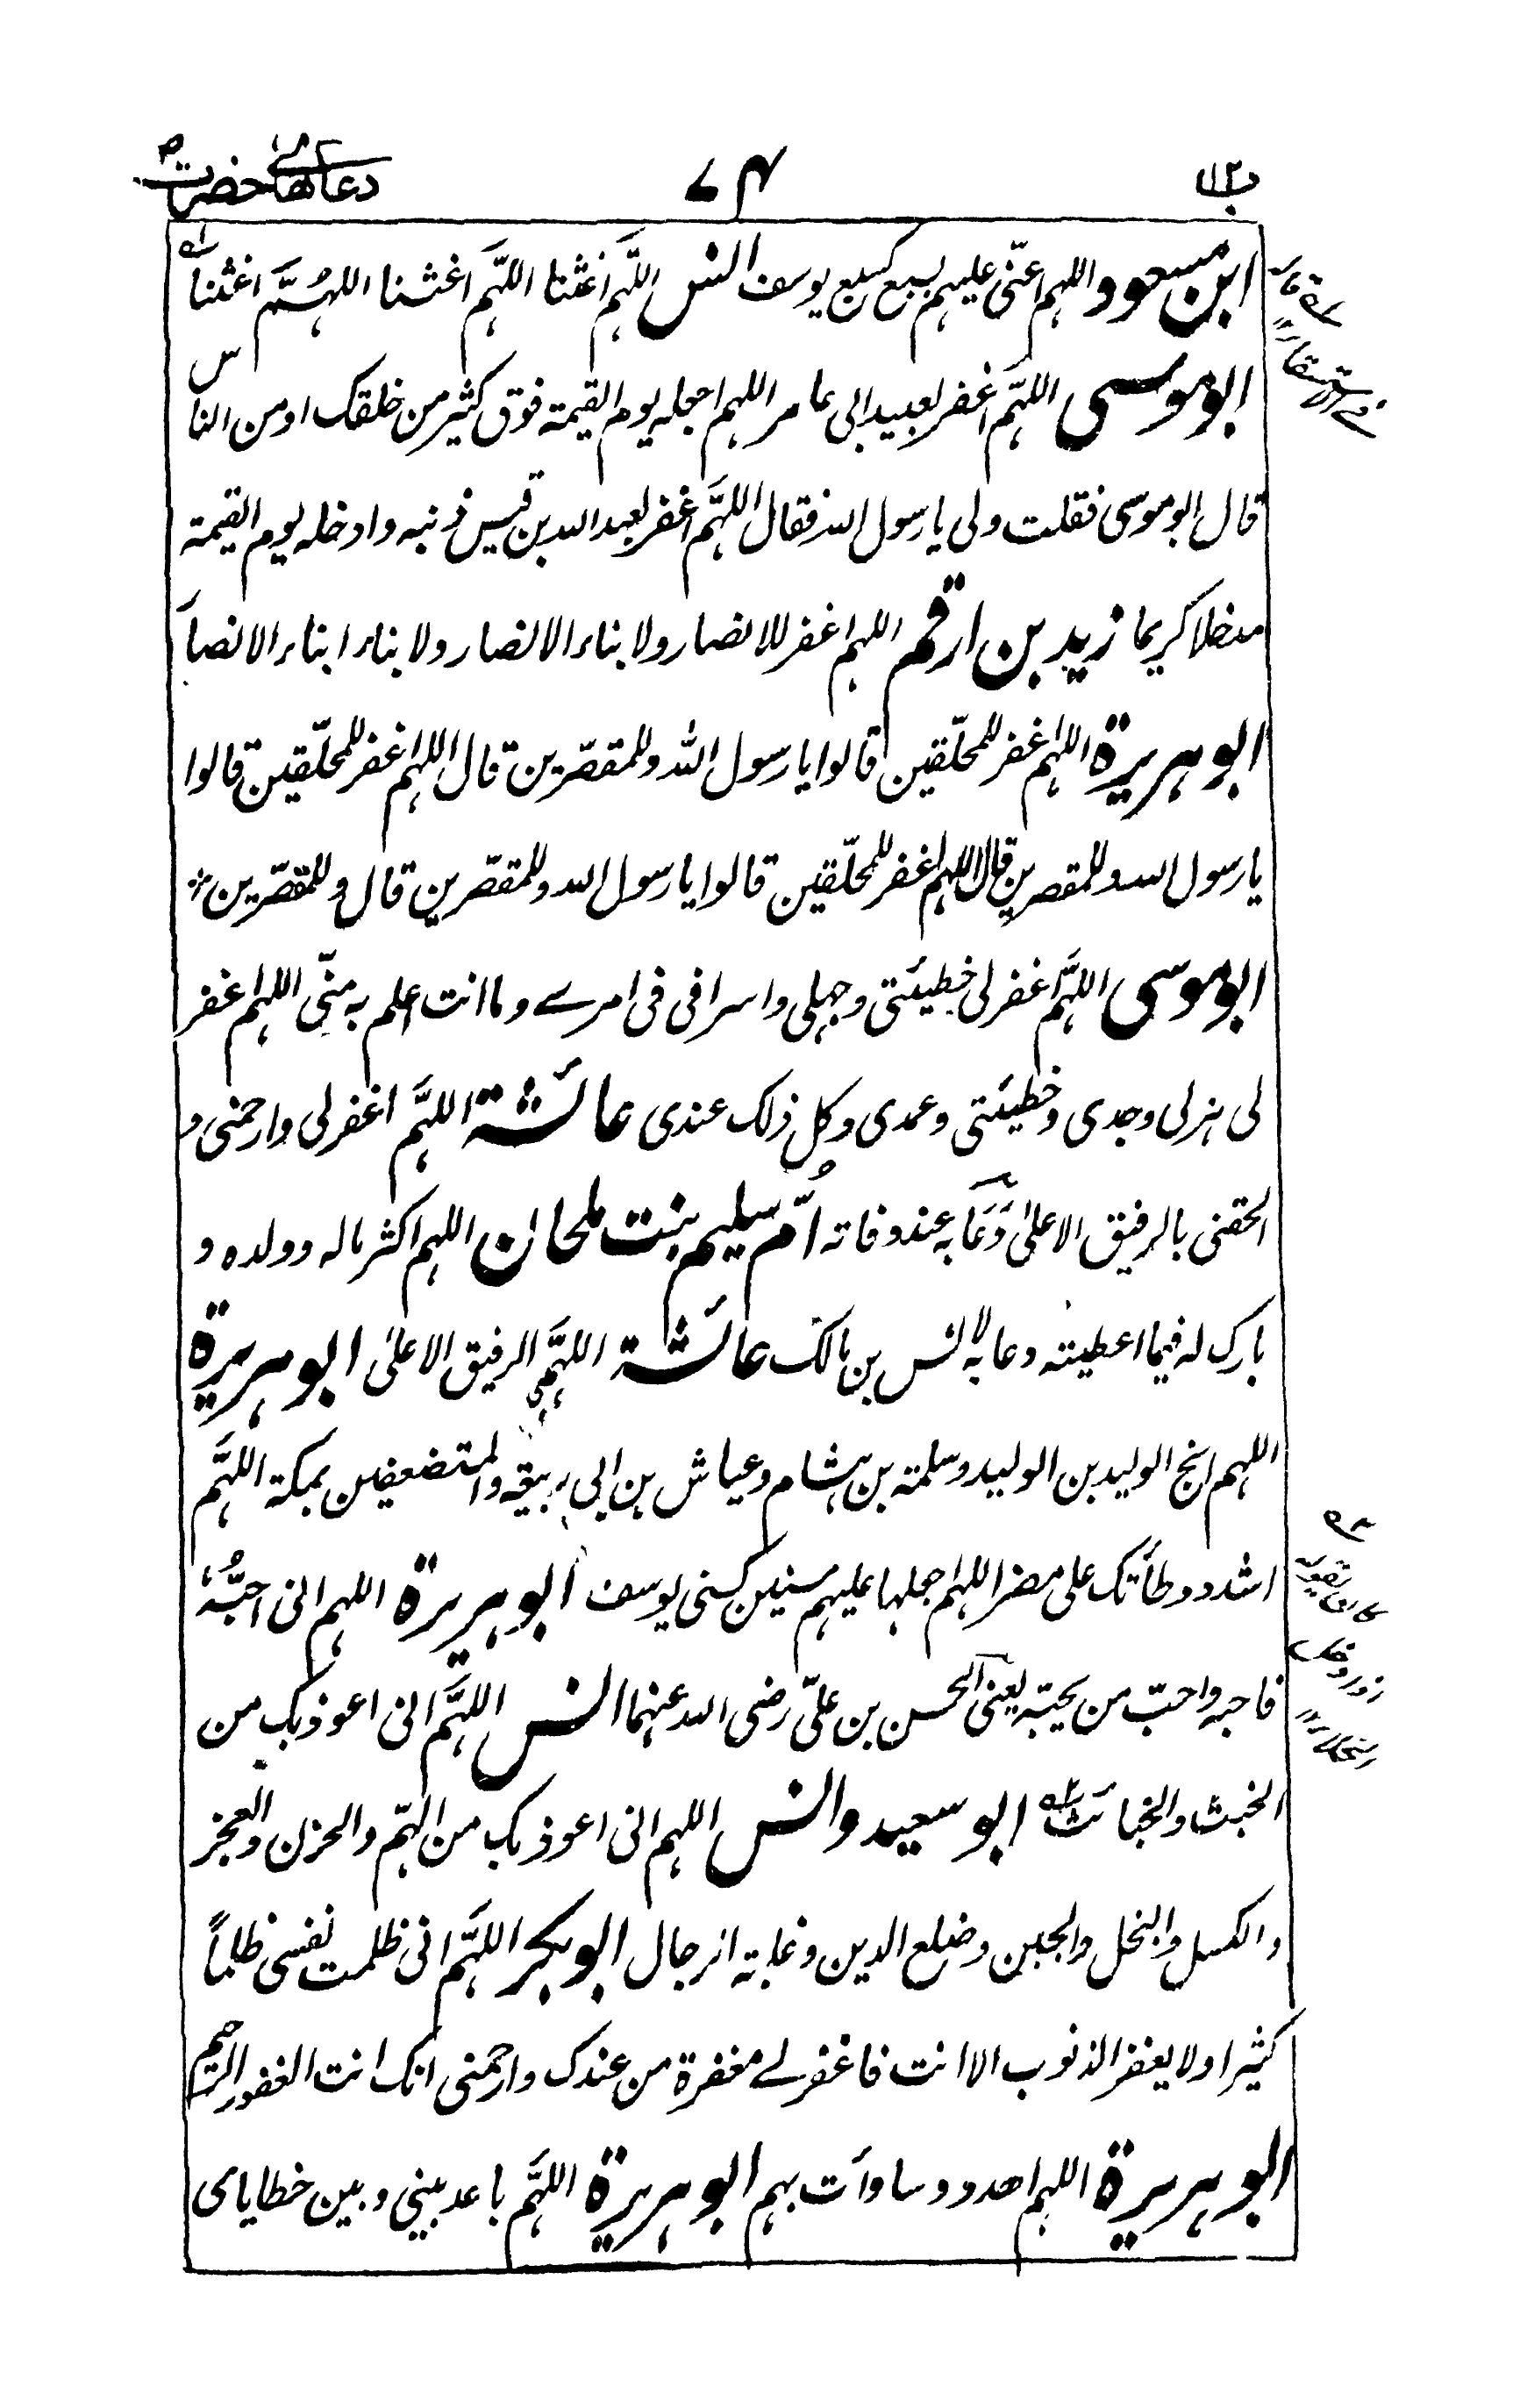 ب ١٢
٧٤
دعاهائے حضرت
ابن مسعود اللهم اعنّى عليهم بسبع كسبع يوسف انس اللّهم اغثنا اللّهم اغثنا اللهمّ اغثنا
ابو موسى اللّهم اغفر لعبيد ابى عامر اللهم اجعله يوم القيمة فوق كثير من خلقك او من الناس
قال ابو موسى فقلت ولى يا رسول الله فقال اللّهم اغفر لعبد الله بن قيس ذنبه وادخله يوم القيمة
مدخلا كريما زيد بن ارقم اللهم اغفر للانصار ولابناء الانصار ولابناء ابناء الانصا
ابو هريرة اللهم اغفر للمحلّقين قالوا يا رسول الله وللمقصّرين قال اللهم اغفر للمحلّقين قالوا
يا رسول الله وللمقصرين قال اللهم اغفر للمحلّقين قالوا يا رسول الله وللمقصّرين قال وللمقصّرين
ابو موسى اللّهم اغفر لى خطيئتى وجهلى واسرافى فى امرے وما انت اعلم به منّى اللهم اغفر
لى هزلى وجدى وخطيئتى وعمدى وكل ذلك عندى عائشة اللّهم اغفر لى وارحمنى و
الحقنى بالرفيق الاعلىٰ دَعَا به عند وفاته اُمّ سليم بنت ملحان اللهم اكثر ماله وولده و
بارك له فيما اعطيته دعا به لانس بن مالك عائشة اللّهم الرفيق الاعلىٰ ابو هريرة
اللهم انج الوليد بن الوليد وسلمة بن هشام وعياش بن ابى ربيعة والمستضعفين بمكة اللّهم
اشدد وطأتك على مضر اللهم اجعلها عليهم سنين كسنى يوسف ابو هريرة اللهم انى احبُّهُ
فاحبه واحبّ من يحبّه يعنى الحسن بن علىّ رضى الله عنهما انس اللّهم انى اعوذ بك من
الخبث والخبائث ابو سعيد وانس اللهم انى اعوذ بك من الهمّ والحزن والعجز
والكسل والبخل والجبن وضلع الدين وغلبة الرجال ابو بكر اللّهم انى ظلمت نفسى ظلماً
كثيرا ولا يغفر الذنوب الا انت فاغفر لے مغفرة من عندك وارحمنى انك انت الغفور الرحيم
ابو هريرة اللهم اهد دوسا وأت بهم ابو هريرة اللّهم باعد بينى وبين خطاياى